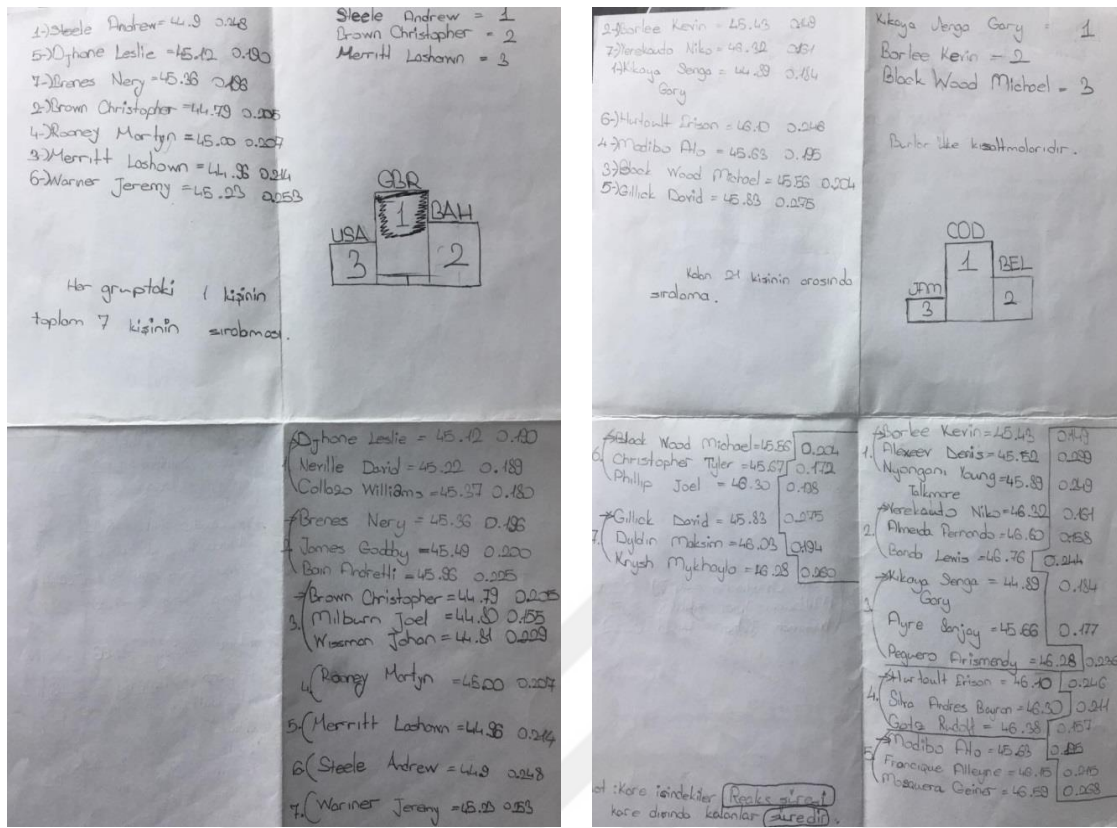 1-)Steele Andrew=44.9 0.248
5-)Djhone Leslie =45.12 0.190
7-)Brenes Nery =45.36 0.196
2-)Brown Christopher =44.79 0.205
4-)Rooney Martyn =45.00 0.207
3-)Merritt Lashawn =44.96 0.214
6-)Warner Jeremy =45.23 0.253
Steele Andrew = 1
Brown Christopher = 2
Merritt Lashawn = 3
GBR
1
BAH
2
USA
3
Her gruptaki 1 kişinin
toplam 7 kişinin sıralaması.
Djhone Leslie = 45.12 0.190
Neville David = 45.22 0.189
Collazo Williams =45.37 0.180
Brenes Nery =45.36 0.196
James Godby =45.49 0.200
Bain Andretti =45.96 0.225
Brown Christopher =44.79 0.205
3. Milburn Joel =44.80 0.155
Wissman Johan =44.81 0.229
4.(Rooney Martyn =45.00 0.207
5-(Merritt Lashawn =44.96 0.214
6( Steele Andrew =44.9 0.248
7.( Wariner Jeremy =45.23 0.253
2-)Borlee Kevin =45.43 0.149
7-)Verekauto Niko =46.32 0.161
1-)Kikaya Senga =44.89 0.184
Gary
6-)Hurtault Erison =46.10 0.246
4-)Modibo Alo =45.63 0.195
3-)Black Wood Michael=45.56 0.204
5-)Gillick David =45.83 0.275
Kikaya Jenga Gary = 1
Borlee Kevin = 2
Black Wood Michael = 3
Bunlar ülke kısaltmalarıdır.
Kalan 21 kişinin arasında
sıralama.
COD
1
BEL
2
JAM
3
6. Black Wood Michael=45.56 0.204
Christopher Tyler =45.67 0.172
Phillip Joel =46.30 0.198
7. Gillick David =45.83 0.275
Dyldin Maksim =46.03 0.194
Krysh Mykhaylo =46.28 0.260
1. Borlee Kevin=45.43 0.149
Alexeev Denis=45.52 0.299
Nyongani Young =45.89 0.219
Talkmore
2. Verekauto Niko=46.32 0.161
Almeida Fernando =46.60 0.158
Banda Lewis =46.76 0.244
3 Kikaya Senga =44.89 0.184
Gary
Ayre Sanjay =45.66 0.177
Peguero Arismendy =46.28 0.236
4. Hurtault Erison =46.10 0.246
Silva Andres Bayron =46.30 0.211
Gotz Rudolf =46.38 0.157
5 Modibo Alo =45.63 0.195
Francique Alleyne =46.15 0.215
Mosquera Geiner =46.59 0.268
ot :Kare içindekiler Reaks süresi
kare dışında kalanlar süredir.